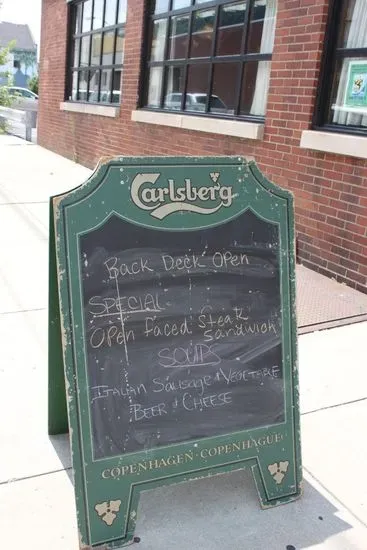 Carlsberg
Back Deck Open
SPECIAL
OPen faced Steak
Sandwich
SOUPS
ITALIAN SAUSAGE & VEGETABLE
BEER & CHEESE
COPENHAGEN · COPENHAGUE